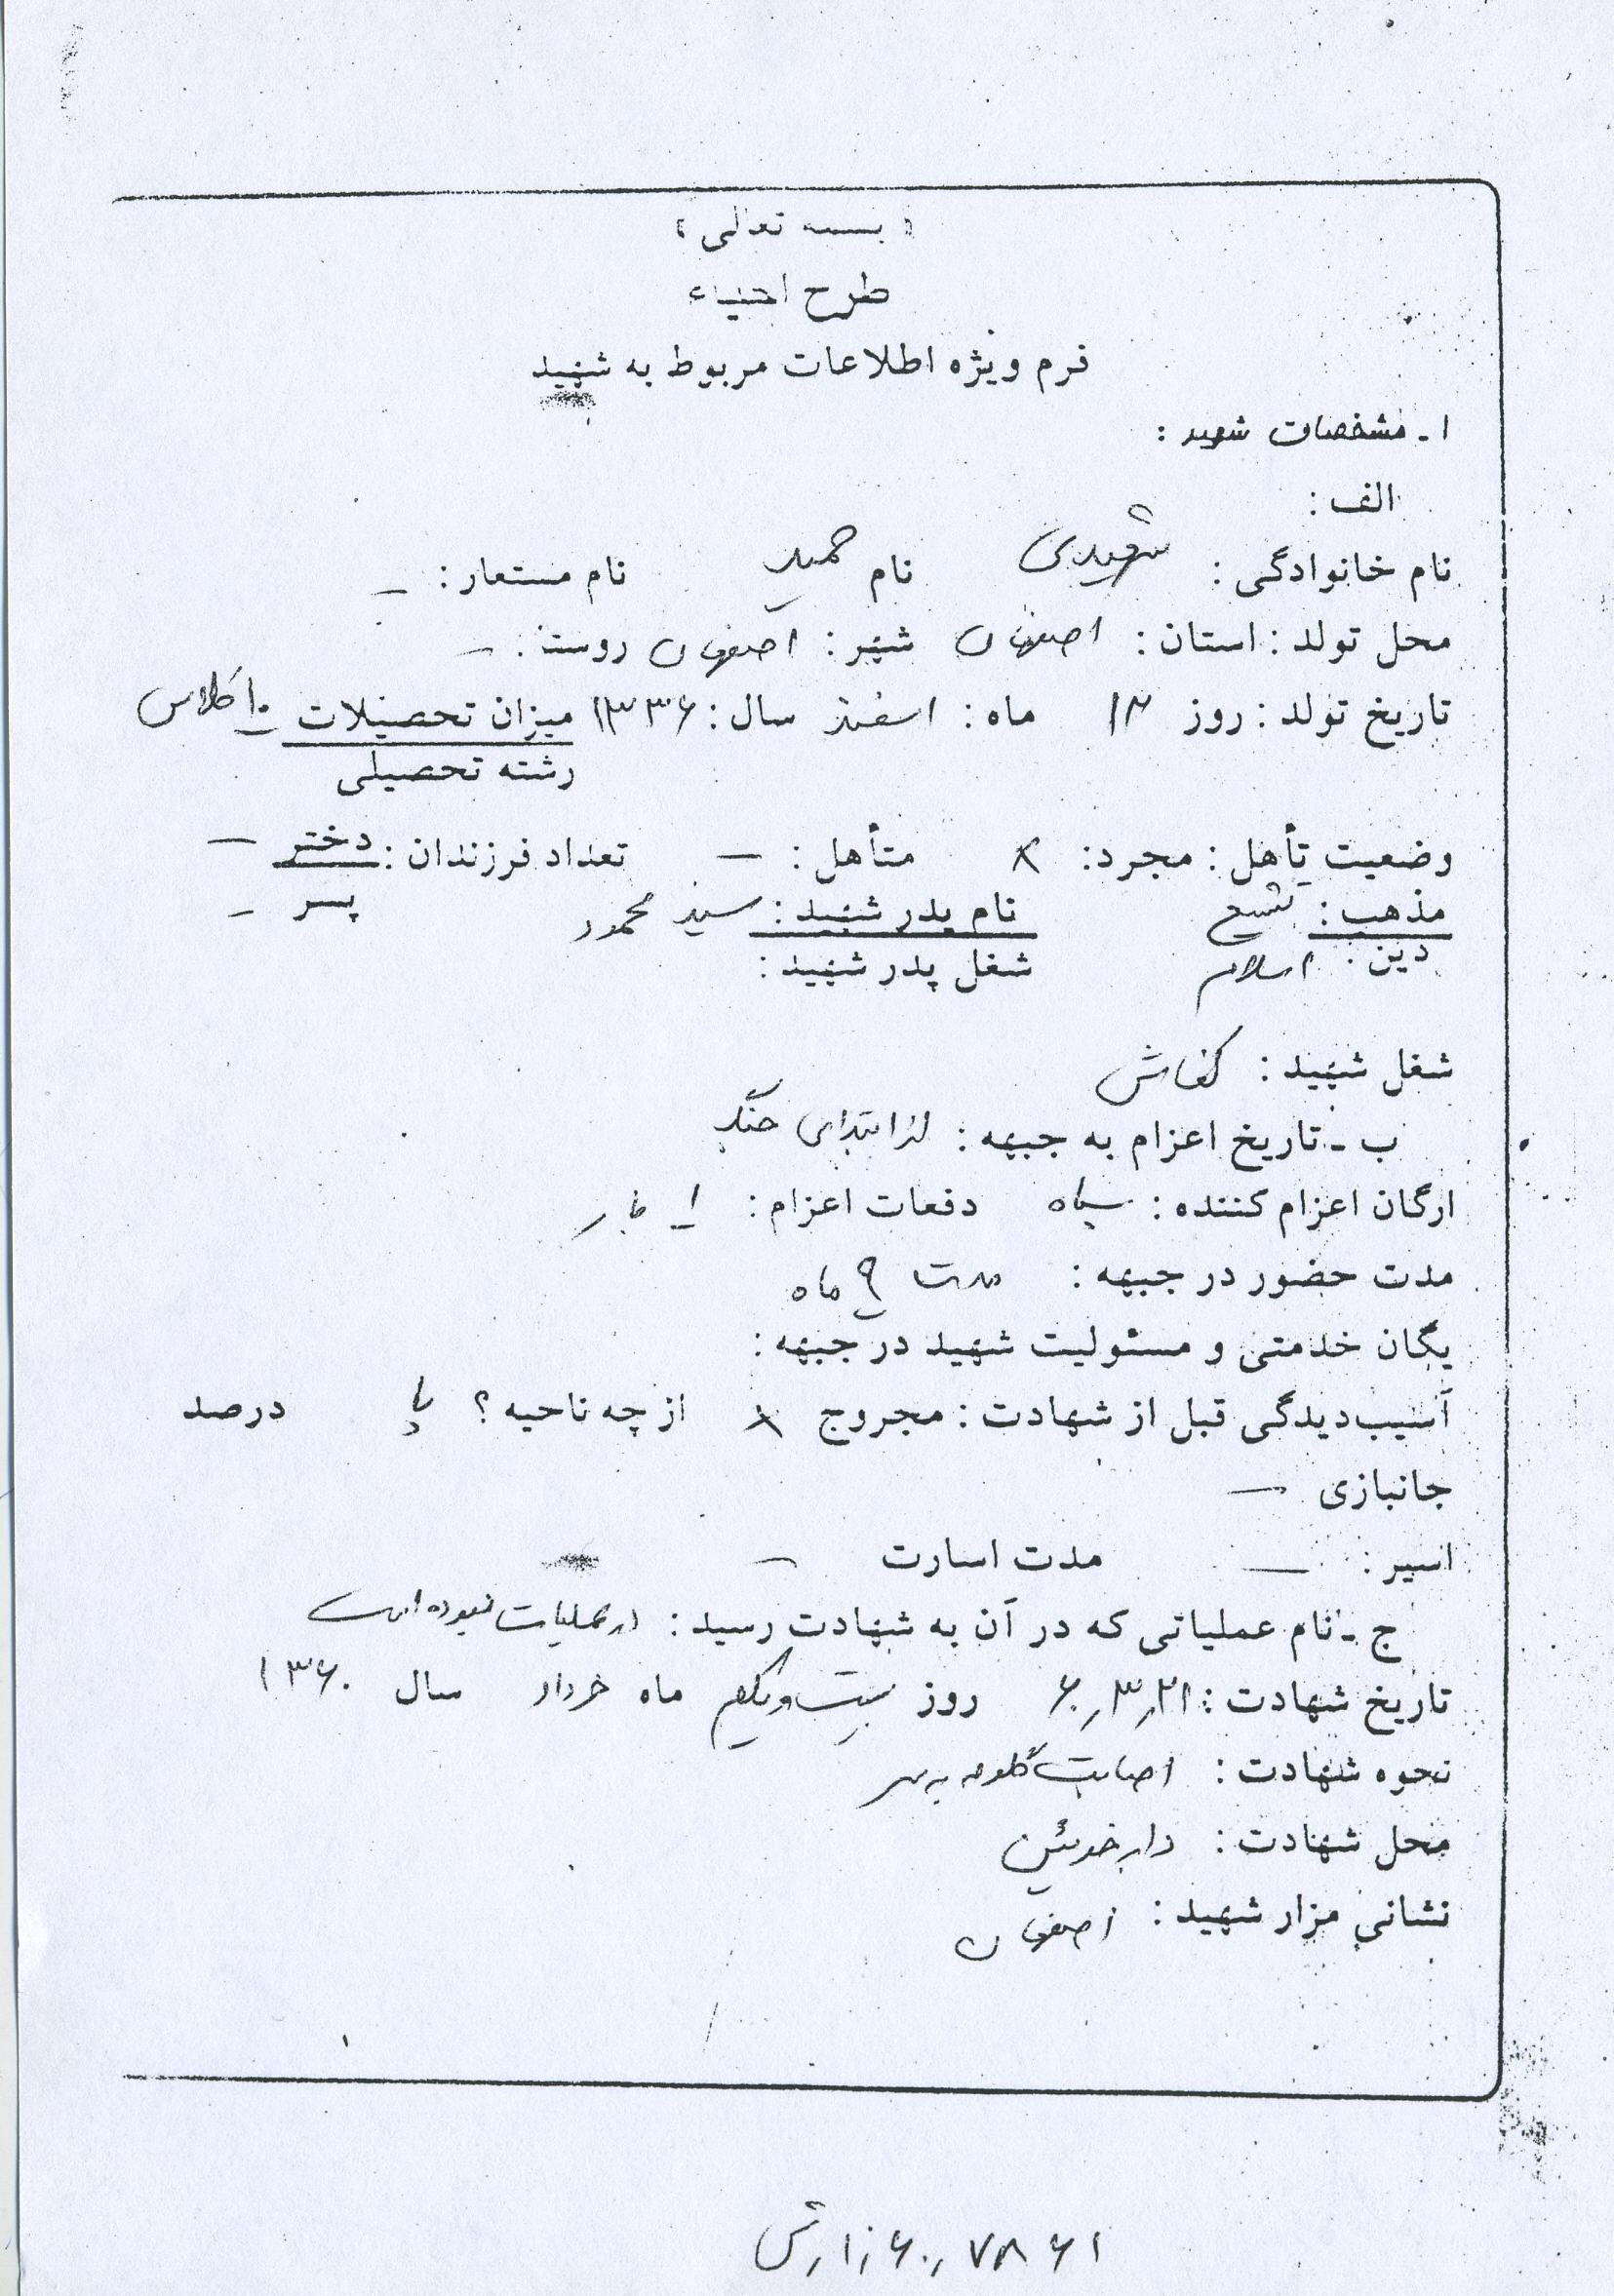 « بسمه تعالی »
طرح احیاء
فرم ویژه اطلاعات مربوط به شهید
۱ـ مشخصات شهید :
الف :
نام خانوادگی : شهیدی نام حمید نام مستعار : ـ
محل تولد : استان : اصفهان شهر : اصفهان روستا : ـ
تاریخ تولد : روز ۱۳ ماه : اسفند سال : ۱۳۳۶ میزان تحصیلات ۱۰ کلاس
رشته تحصیلی
وضعیت تأهل : مجرد : × متأهل : ـ تعداد فرزندان : دختر ـ
مذهب : تشیع نام پدر شهید : سید محمود پسر ـ
دین : اسلام شغل پدر شهید :
شغل شهید : کفاش
ب ـ تاریخ اعزام به جبهه : از ابتدای جنگ
ارگان اعزام کننده : سپاه دفعات اعزام : ۱ بار
مدت حضور در جبهه : مدت ۹ ماه
یگان خدمتی و مسئولیت شهید در جبهه :
آسیب‌دیدگی قبل از شهادت : مجروح × از چه ناحیه ؟ پا درصد
جانبازی ـ
اسیر : ـ مدت اسارت ـ
ج ـ نام عملیاتی که در آن به شهادت رسید : در عملیات نبوده است
تاریخ شهادت : ۶۰٫۳٫۲۱ روز بیست و یکم ماه خرداد سال ۱۳۶۰
نحوه شهادت : اصابت گلوله به سر
محل شهادت : دارخوئین
نشانی مزار شهید : اصفهان